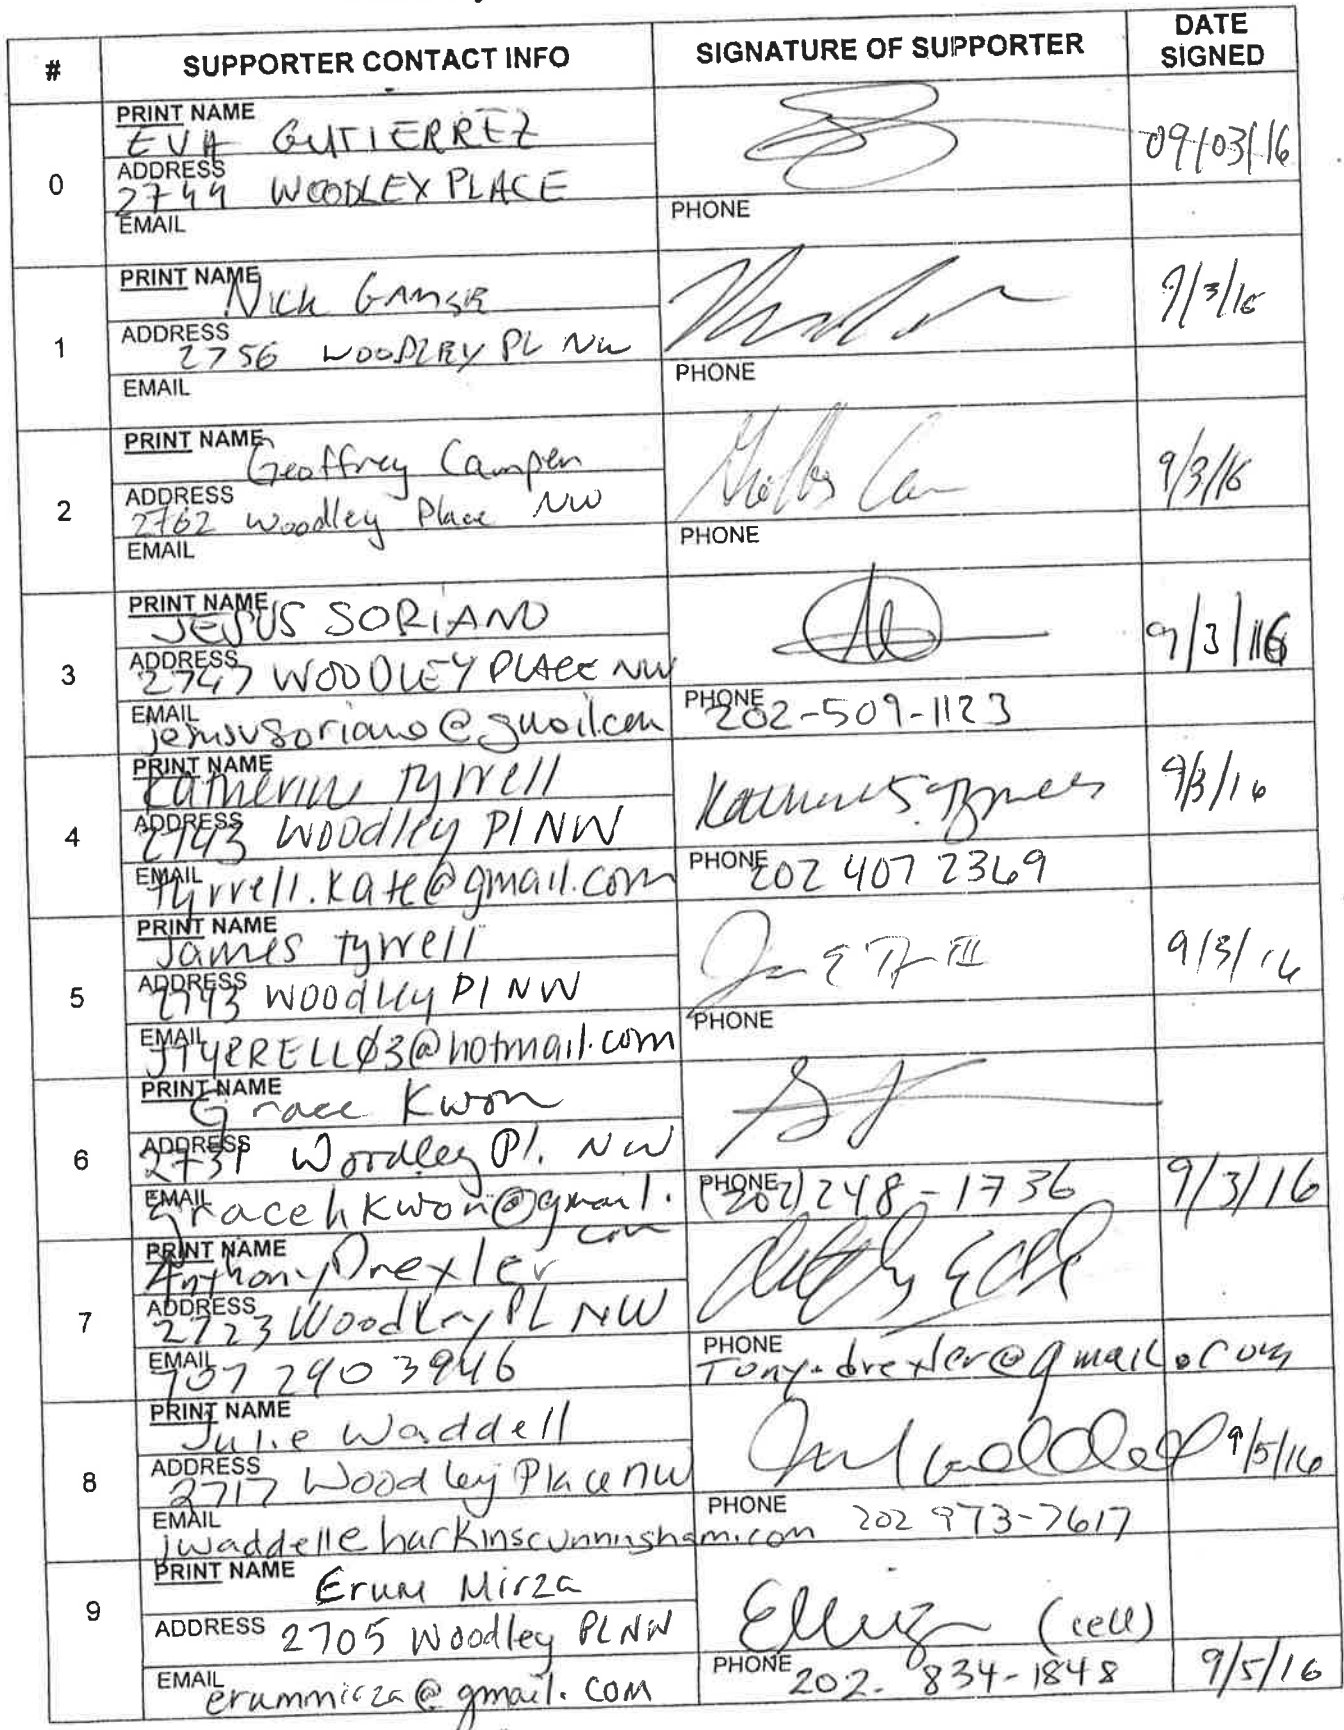 # SUPPORTER CONTACT INFO SIGNATURE OF SUPPORTER DATE SIGNED
0
PRINT NAME EVA GUTIERREZ
09/03/16
ADDRESS 2744 WOODLEY PLACE
EMAIL
PHONE
1
PRINT NAME Nick
9/3/16
ADDRESS 2756 WOODLEY PL NW
EMAIL
PHONE
2
PRINT NAME Geoffrey Campen
9/3/16
ADDRESS 2762 Woodley Place NW
EMAIL
PHONE
3
PRINT NAME JESUS SORIANO
9/3/16
ADDRESS 2747 WOODLEY PLACE NW
EMAIL jemsvsoriano@gmail.com
PHONE 202-509-1123
4
PRINT NAME Katherine Tyrrell
9/3/16
ADDRESS 2743 Woodley Pl NW
EMAIL tyrrell.kate@gmail.com
PHONE 202 407 2369
5
PRINT NAME James Tyrrell
9/3/16
ADDRESS 2743 Woodley Pl NW
EMAIL JTYRRELL03@hotmail.com
PHONE
6
PRINT NAME Grace Kwon
ADDRESS 2731 Woodley Pl. NW
EMAIL gracehkwon@gmail.com
PHONE (202) 248-1736
9/3/16
7
PRINT NAME Anthony Drexler
ADDRESS 2723 Woodley PL NW
EMAIL 707 290 3946
PHONE Tony.drexler@gmail.com
8
PRINT NAME Julie Waddell
9/5/16
ADDRESS 2717 Woodley Place NW
EMAIL jwaddell@harkinscunningham.com
PHONE 202 973-7617
9
PRINT NAME Erum Mirza
(cell)
ADDRESS 2705 Woodley PL NW
EMAIL erummirza@gmail.com
PHONE 202-834-1848
9/5/16